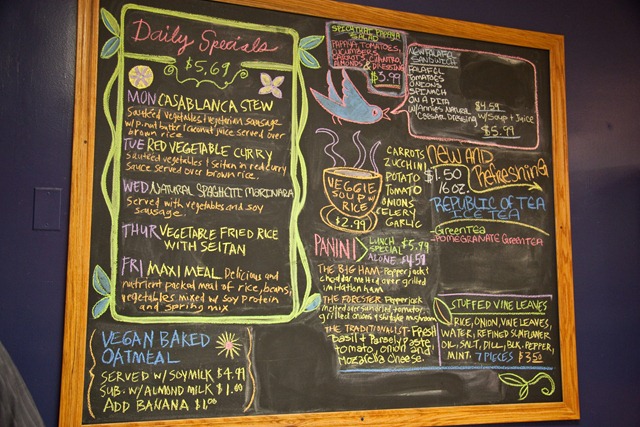 Daily Specials
$5.69
MON CASABLANCA STEW
Sauteed vegetables & vegetarian sausage
w/ p.nut butter & coconut juice served over
brown rice
TUE RED VEGETABLE CURRY
sauteed vegetables & seitan in red curry
sauce served over brown rice.
WED NATURAL SPAGHETTI MARINARA
Served with vegetables and soy
sausage.
THUR VEGETABLE FRIED RICE
WITH SEITAN
FRI MAXI MEAL Delicious and
nutrient packed meal of rice, beans,
vegetables mixed w/ soy protein
and spring mix
VEGAN BAKED
OATMEAL
SERVED W/ SOYMILK $4.99
SUB. W/ ALMOND MILK $1.00
ADD BANANA $1.00
SPICY THAI PAPAYA
SALAD
PAPAYA, TOMATOES,
CUCUMBERS,
CARROTS, CILANTRO,
ALMONDS & DRESSING
$3.99
NEW FALAFEL
SANDWICH
FALAFEL
TOMATOES
ONIONS
SPINACH
ON A PITA
W/ ANNIES NATURAL
CAESAR DRESSING
$4.59
W/ Soup + Juice
$5.99
VEGGIE
SOUP w/
RICE
$2.99
CARROTS
ZUCCHINI
POTATO
TOMATO
ONIONS
CELERY
GARLIC
NEW AND
Refreshing
$1.50
16 oz.
REPUBLIC OF TEA
ICE TEA
-GREEN TEA
-POMEGRANATE GREEN TEA
PANINI
LUNCH SPECIAL $5.99
ALONE $4.59
THE BIG HAM- Pepperjack &
cheddar melted over grilled
imitation ham
THE FORESTER- Pepperjack
melted over sundried tomato,
grilled onions & shiitake mushroom
THE TRADITIONALIST- Fresh
Basil & Parsely Paste
tomato, onion and
Mozarella Cheese.
STUFFED VINE LEAVES
RICE, ONION, VINE LEAVES,
WATER, REFINED SUNFLOWER
OIL, SALT, DILL, BLK. PEPPER,
MINT. 7 PIECES $3.50